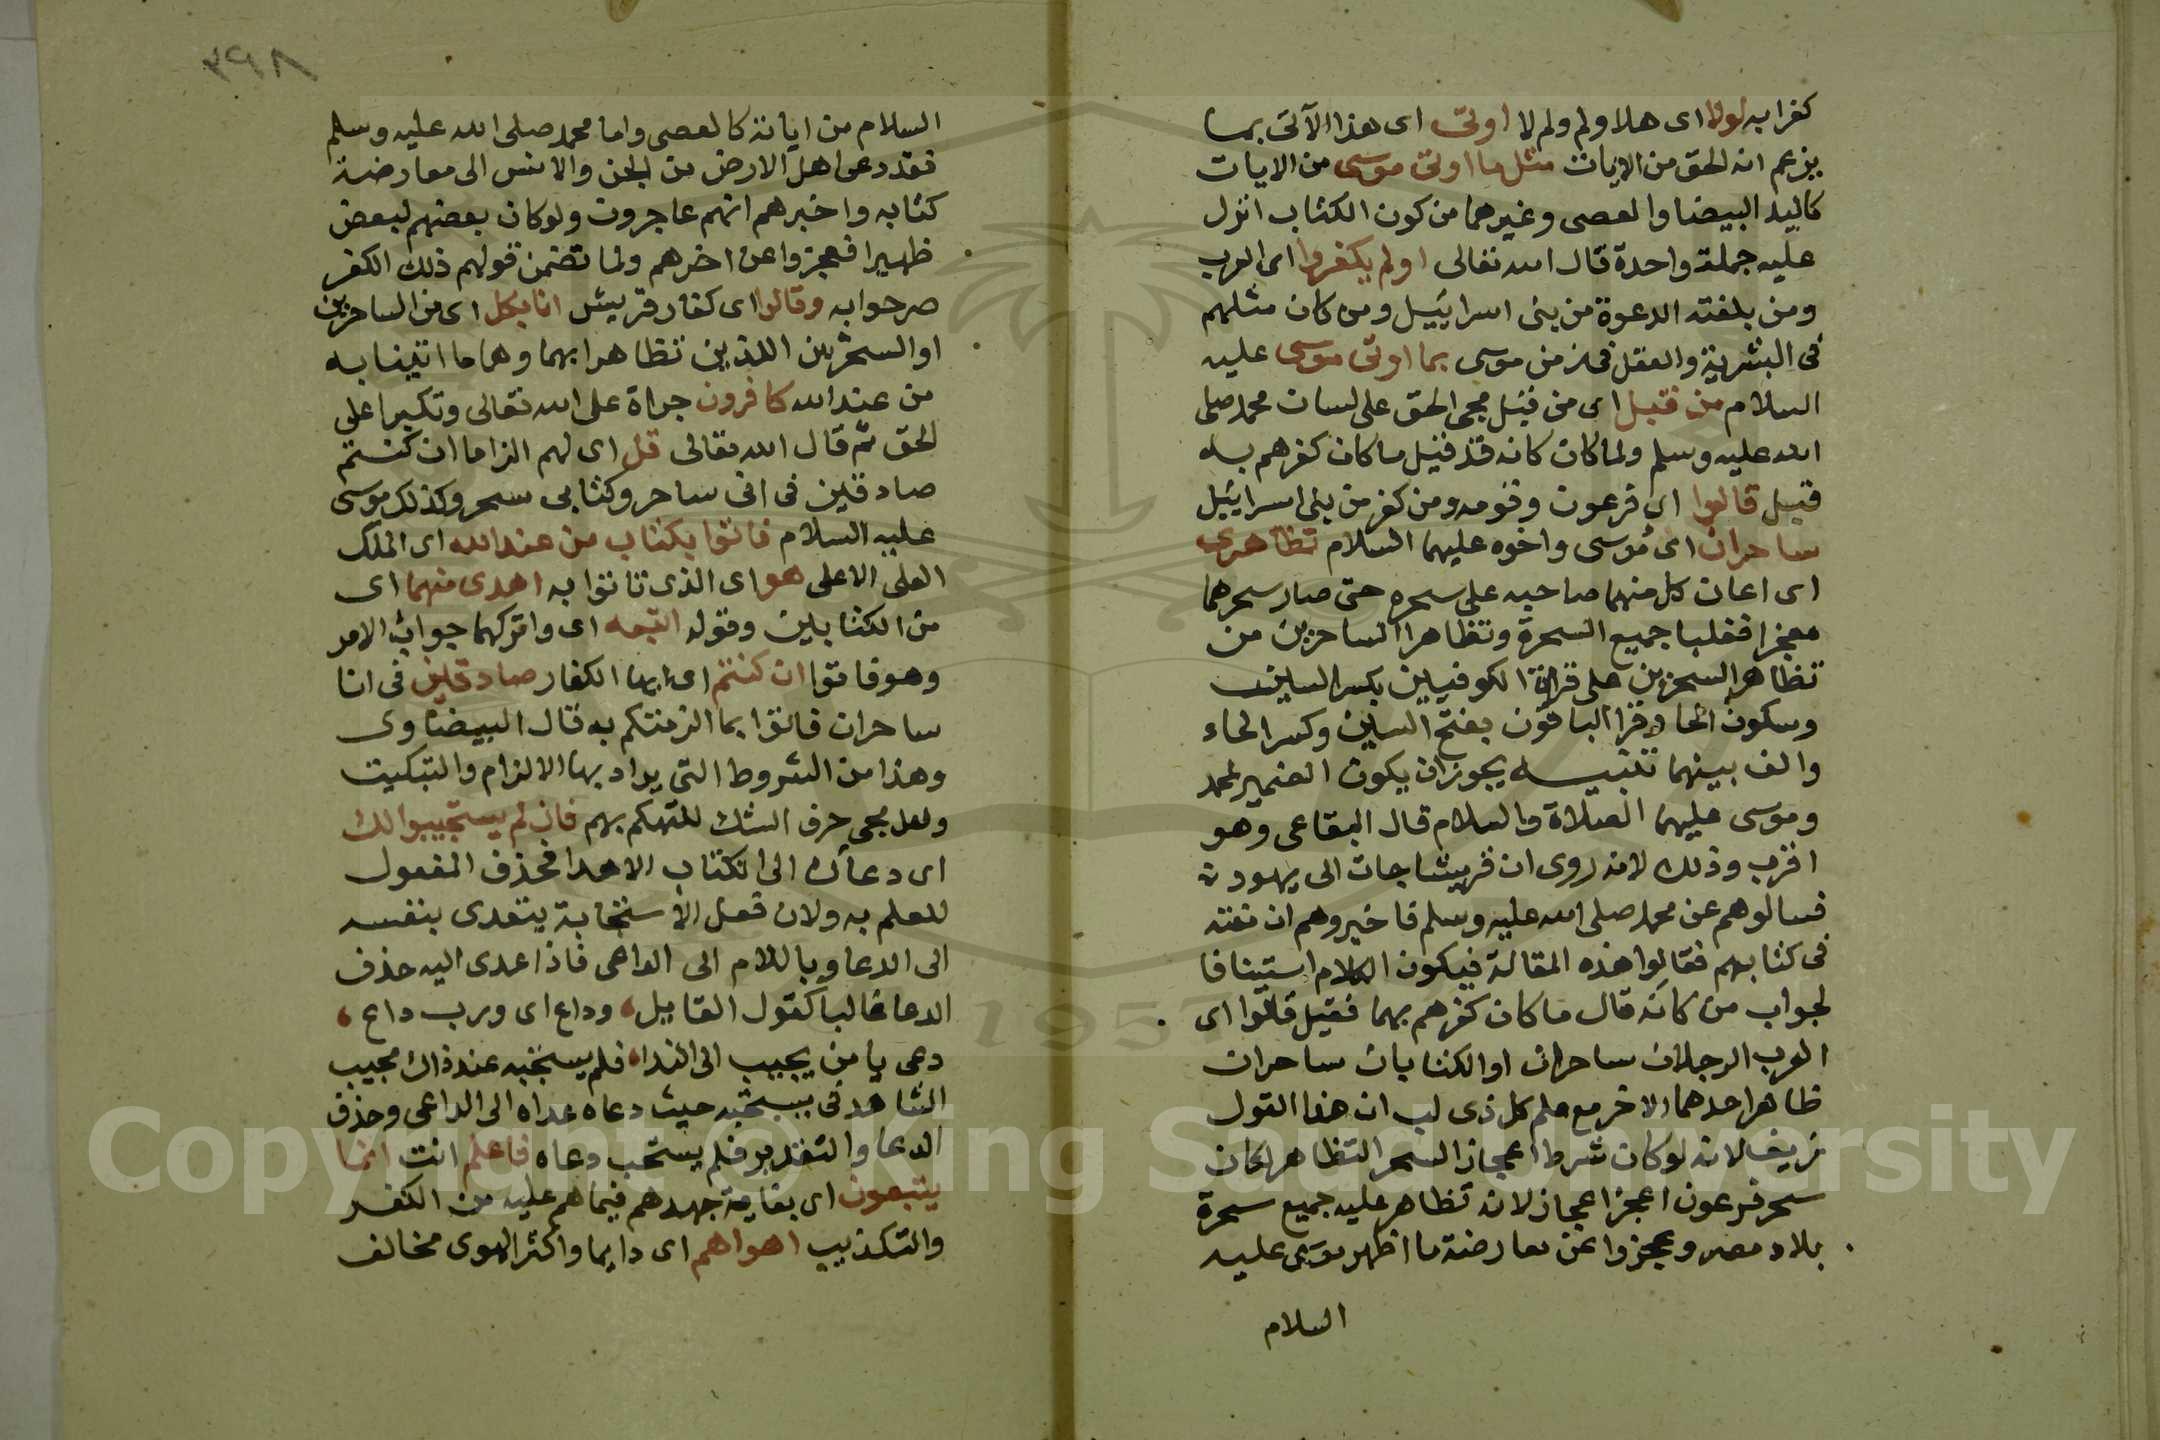 كفرا به لولا اى هلا ولم ولم لا اوتى اى هذا الآتى بما
يزعم انه الحق من الايات مثل ما اوتى موسى من الايات
كاليد البيضا والعصى وغيرهما من كون الكتاب انزل
عليه جملة واحدة قال الله تعالى اولم يكفروا اى العرب
ومن بلغته الدعوة من بنى اسراييل ومن كان مثلهم
فى البشرية والعقل فى زمن موسى بما اوتى موسى عليه
السلام من قبل اى من قبل مجى الحق على لسان محمد صلى
الله عليه وسلم ولما كان كانه قد قيل ما كان كفرهم به
قيل قالوا اى فرعون وقومه ومن كفر من بنى اسراييل
ساحران اى موسى واخوه عليهما السلام تظاهرى
اى اعان كل منهما صاحبه على سحره حتى صار سحرهما
معجزا فغلبا جميع السحرة وتظاهرا الساحرين من
تظاهر السحرين على قراة الكوفيين بكسر السين
وسكون الحا وقرا الباقون بفتح السين وكسر الحاء
والف بينهما تنبيه يجوز ان يكون الضمير لمحمد
وموسى عليهما الصلاة والسلام قال البقاعى وهو
اقرب وذلك لانه روى ان قريشا جات الى يهود
فسالوهم عن محمد صلى الله عليه وسلم فاخبروهم ان نعته
فى كتابهم فقالوا هذه المقالة فيكون الكلام استينافا
لجواب من كانه قال ما كان كفرهم بهما فقيل قالوا اى
العرب الرجلان ساحران او الكتابان ساحران
ظاهر احدهما الاخر مع علم كل ذى لب ان هذا القول
زيف لانه لو كان شرط اعجاز السحر التظاهر لكان
سحر فرعون اعجز اعجاز لانه تظاهر عليه جميع سحرة
بلاد مصر وعجزوا عن معارضة ما اظهر موسى عليه
السلام
٣٩٨
السلام من اياته كالعصى واما محمد صلى الله عليه وسلم
فقد دعى اهل الارض من الجن والانس الى معارضة
كتابه واخبرهم انهم عاجرون ولو كان بعضهم لبعض
ظهيرا فعجزوا عن اخرهم ولما تضمن قولهم ذلك الكفر
صرحوا به وقالوا اى كفار قريش انا بكل اى من الساحرين
او السحرين اللذين تظاهرا بهما وهما ما اتينا به
من عند الله كافرون جراة على الله تعالى وتكبرا على
الحق ثم قال الله تعالى قل اى لهم الزاما ان كنتم
صادقين فى انى ساحر وكتابى سحر وكذلك موسى
عليه السلام فاتوا بكتاب من عند الله اى الملك
العلى الاعلى هو اى الذى تاتوا به اهدى منهما اى
من الكتابين وقوله اتبعه اى واتركهما جواب الامر
وهو فاتوا ان كنتم اى ايها الكفار صادقين فى انا
ساحران فاتوا بما الزمتكم به قال البيضاوى
وهذا من الشروط التى يراد بها الالزام والتبكيت
ولعل مجى حرف الشك للتهكم بهم فان لم يستجيبوا لك
اى دعاك الى الكتاب الاهدا فحذف المفعول
للعلم به ولان فعل الاستجابة يتعدى بنفسه
الى الدعا وباللام الى الداعى فاذا عدى اليه حذف
الدعا غالبا كقول القايل، وداع اى ورب داع،
دعى يا من يجيب الى الندا، فلم يستجبه عند ذاك مجيب
الشاهد فى يستجبه حيث دعاه عداه الى الداعى وحذف
الدعا والتقدير فلم يستجب دعاه فاعلم انت انما
يتبعون اى بغاية جهدهم فيما هم عليه من الكفر
والتكذيب اهواهم اى دايما واكثر الهوى مخالف
Copyright © King Saud University
1957